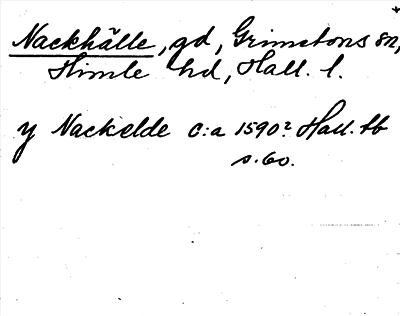 Nackhälle, gd, Grimetons sn,
Himle hd, Hall. l.
y Nackelde c:a 1590? Hall. tb
s. 60.